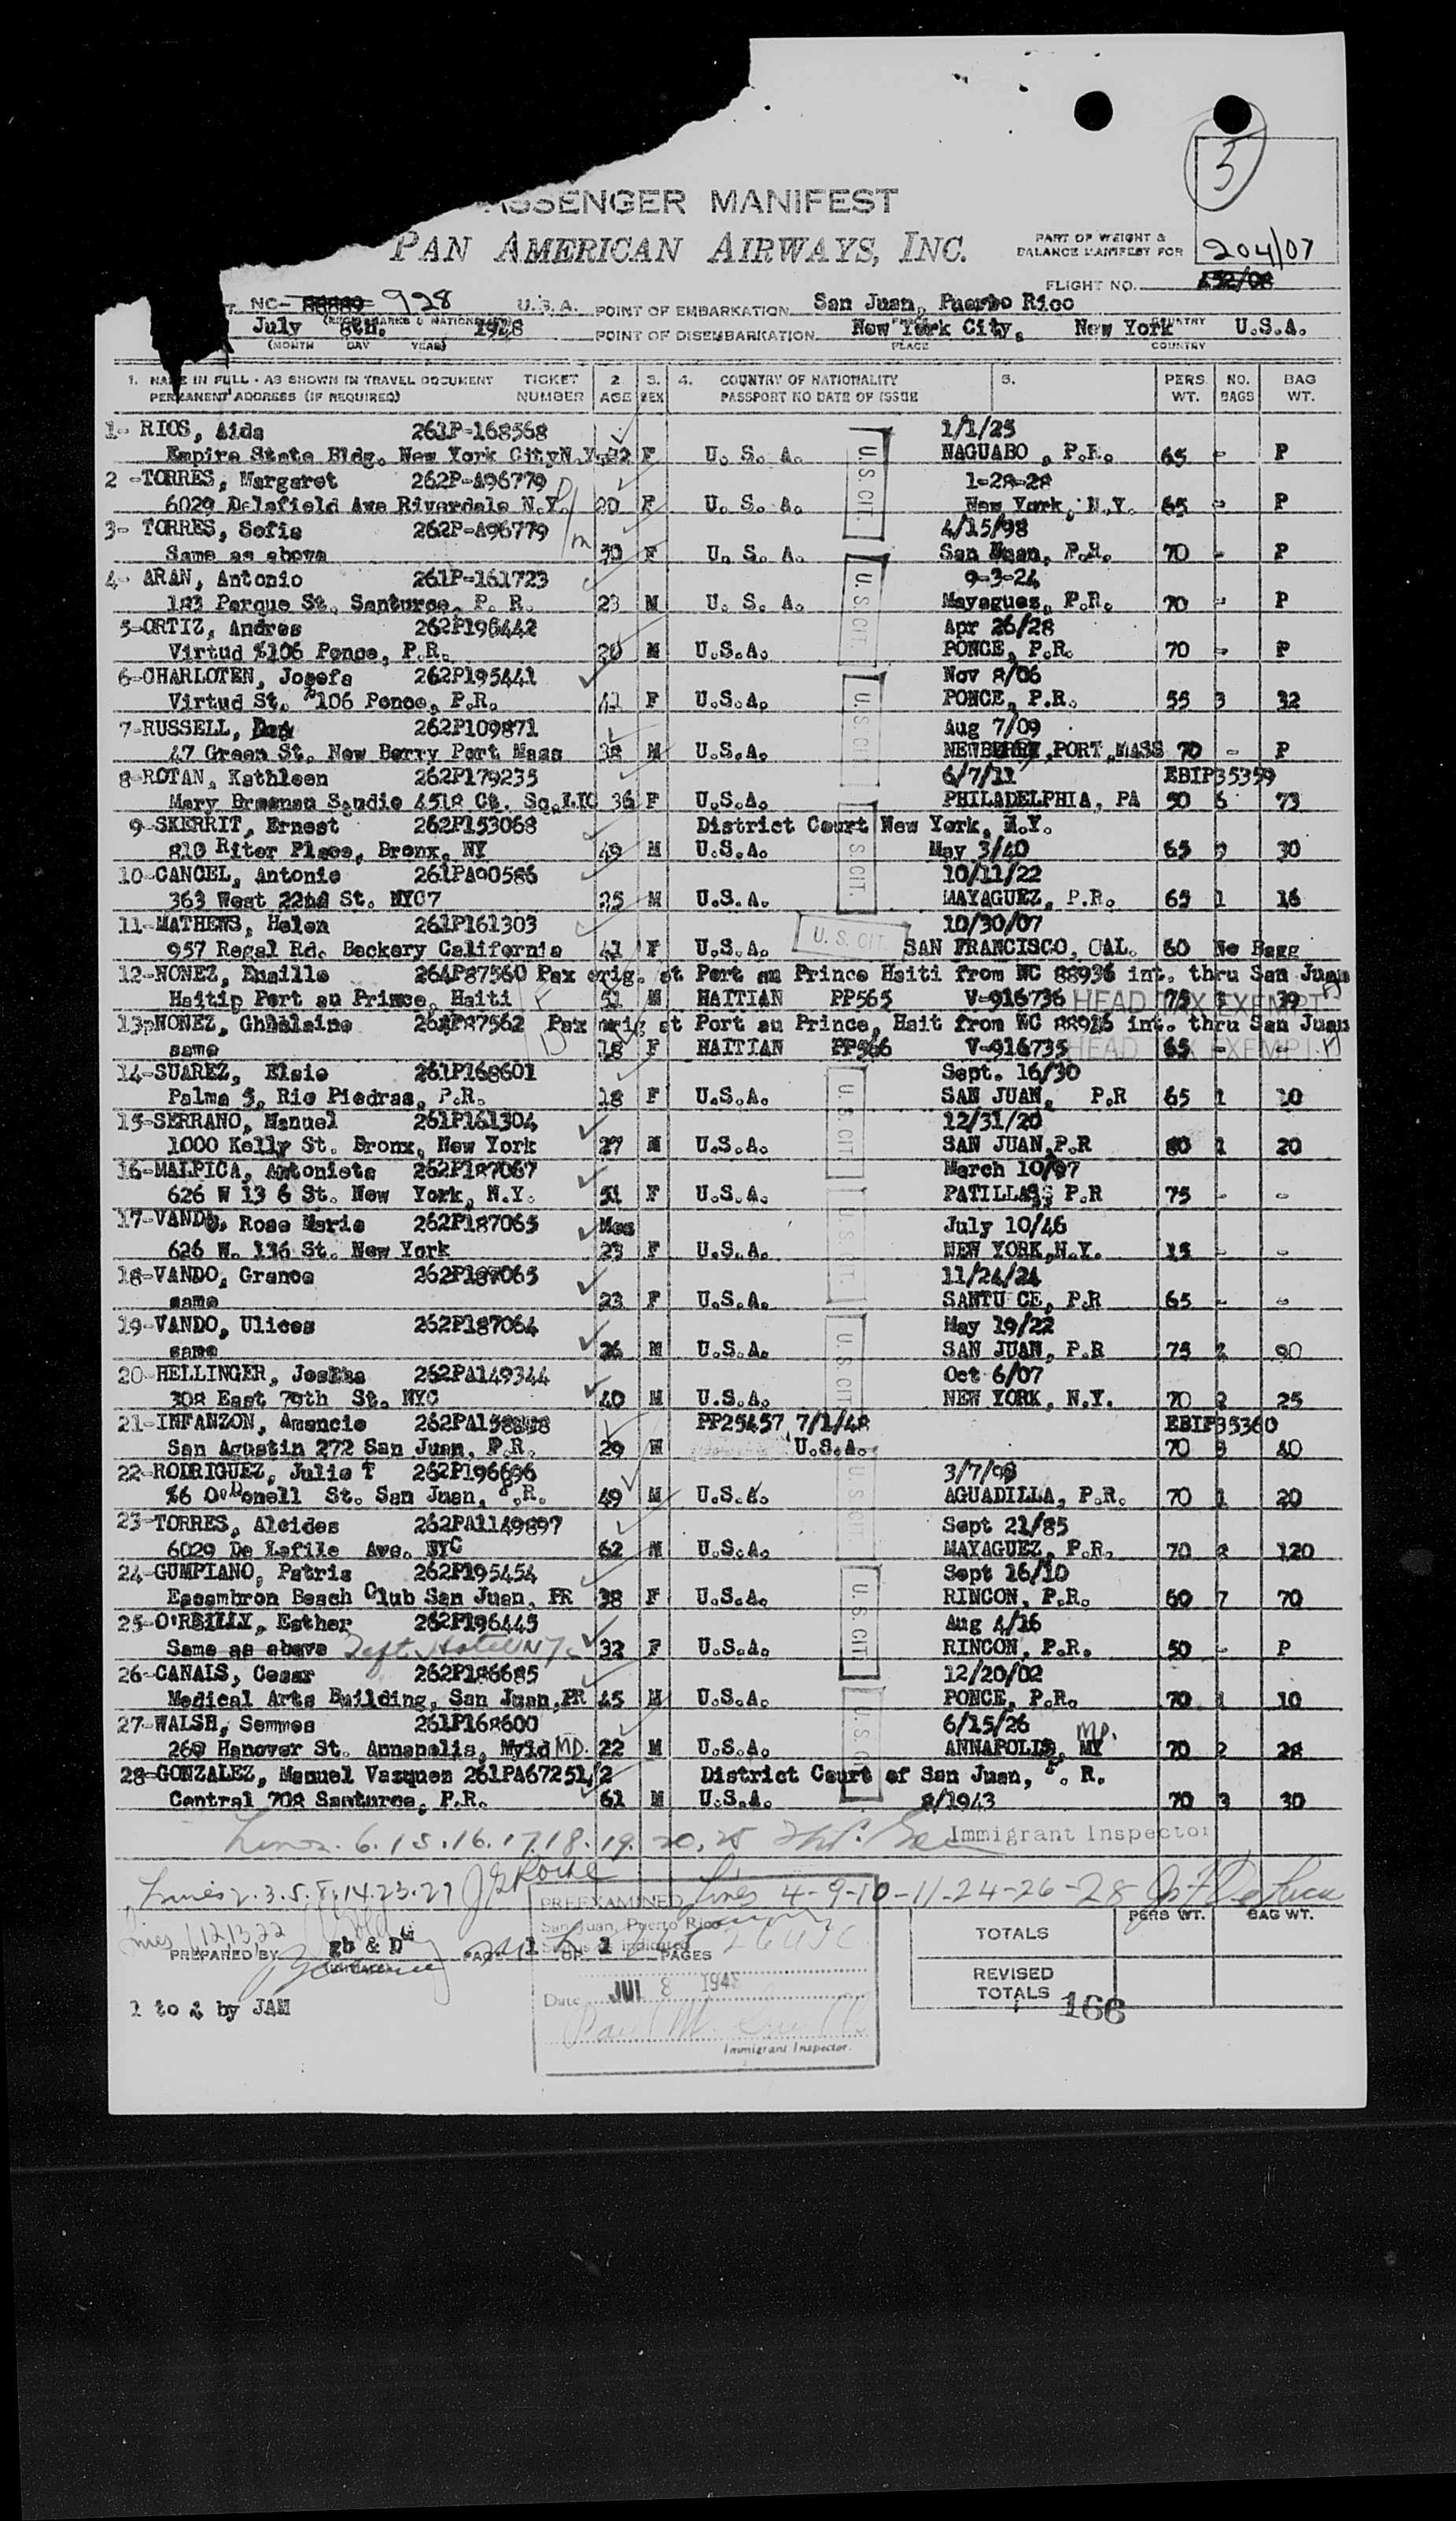 3
PASSENGER MANIFEST
PAN AMERICAN AIRWAYS, INC.
PART OF WEIGHT &
BALANCE MANIFEST FOR
204/07
FLIGHT NO.
NC- 928 U.S.A. POINT OF EMBARKATION San Juan, Puerto Rico
July 8th, 1948 POINT OF DISEMBARKATION New York City, New York U.S.A.
(MONTH DAY YEAR) PLACE COUNTRY
1. NAME IN FULL - AS SHOWN IN TRAVEL DOCUMENT TICKET 2. 3. 4. COUNTRY OF NATIONALITY 5. PERS. NO. BAG
PERMANENT ADDRESS (IF REQUIRED) NUMBER AGE SEX PASSPORT NO DATE OF ISSUE WT. BAGS WT.
1- RIOS, Aida 261P-168568 1/1/25
Empire State Bldg. New York City N.Y. F U. S. A. NAGUABO , P.R. 65 - P
2 -TORRES, Margaret 262P-A96779 1-28-28
6029 Delafield Ave Riverdale N.Y. 20 F U. S. A. New York, N.Y. 65 - P
3- TORRES, Sofia 262P-A96779 4/15/98
Same as above F U. S. A. San Juan, P.R. 70 - P
4- ARAN, Antonio 261P-161723 9-3-24
183 Parque St. Santurce, P. R. 23 M U. S. A. Mayaguez, P.R. 70 - P
5-ORTIZ, Andres 262P196442 Apr 26/28
Virtud #106 Ponce, P.R. 20 M U.S.A. PONCE, P.R. 70 - P
6-CHARLOTEN, Josefa 262P195441 Nov 8/06
Virtud St. #106 Ponce, P.R. 41 F U.S.A. PONCE, P.R. 55 3 32
7-RUSSELL, 262P109871 Aug 7/09
47 Green St. New Berry Port Mass 38 M U.S.A. NEWBURRY,PORT,MASS 70 - P
8-ROTAN, Kathleen 262P179235 6/7/11 EBIP35359
Mary Brennan Saudie 4518 Ct. Sq.LIC 36 F U.S.A. PHILADELPHIA, PA 50 6 73
9-SKERRIT, Ernest 262P153068 District Court New York, N.Y.
810 Ritor Place, Bronx, NY 49 M U.S.A. May 3/40 65 30
10-CANCEL, Antonio 261PA90586 10/11/22
363 West 22nd St. NYC7 25 M U.S.A. MAYAGUEZ, P.R. 65 1 16
11-MATHEWS, Helen 261P161303 10/30/07
957 Regal Rd. Beckery California 41 F U.S.A. U. S. CIT. SAN FRANCISCO, CAL. 60 No Bagg
12-NONEZ, Emaille 264P87560 Pax orig. at Port au Prince Haiti from NC 88936 int. thru San Juan
Haitip Port au Prince, Haiti 51 M HAITIAN PP565 V-916736 HEAD TAX EXEMPT 75 3 39
13-NONEZ, Ghislaine 264P87562 Pax orig at Port au Prince, Hait from NC int. thru San Juan
same 18 F HAITIAN PP566 V-916735 HEAD TAX EXEMPT 65 - -
14-SUAREZ, Elsie 261P168601 Sept. 16/30
Palma 5, Rio Piedras, P.R. 18 F U.S.A. SAN JUAN, P.R 65 1 10
15-SERRANO, Manuel 261P161304 12/31/20
1000 Kelly St. Bronx, New York 27 M U.S.A. SAN JUAN,P.R 80 1 20
16-MALPICA, Antonieta 262P187067 March 10/97
626 W 13 6 St. New York, N.Y. 51 F U.S.A. PATILLAS, P.R 75 - -
17-VANDO, Rose Marie 262P187065 Mos July 10/46
626 W. 136 St. New York 23 F U.S.A. NEW YORK,N.Y. 15 - -
18-VANDO, Granca 262P187065 11/24/24
same 23 F U.S.A. SANTU CE, P.R 65 - -
19-VANDO, Ulices 262P187064 May 19/22
same 26 M U.S.A. SAN JUAN, P.R 75 2 90
20-HELLINGER, 262PA149344 Oct 6/07
308 East 79th St. NYC 40 M U.S.A. NEW YORK, N.Y. 70 2 25
21-INFANZON, Amancio PP25457 7/1/48 EBIP35360
San Agustin 272 San Juan, P.R. 29 M U.S.A. 70 3 40
22-RODRIGUEZ, Julio T 262P196696 3/7/98
#6 O'Donell St. San Juan, P.R. 49 M U.S.A. AGUADILLA, P.R. 70 1 20
23-TORRES, Alcides 262PA1149897 Sept 21/85
6029 De Lafile Ave. NYC 62 M U.S.A. MAYAGUEZ, P.R. 70 2 120
24-GUMPIANO, Patria 262P195454 Sept 16/10
Escambron Beach Club San Juan, PR 38 F U.S.A. RINCON, P.R. 60 7 70
25-O'REILLY, Esther 262P196445 Aug 4/16
Same as above Taft Hotel NYC 32 F U.S.A. RINCON, P.R. 50 - P
26-CANALS, Cesar 262P186685 12/20/02
Medical Arts Building, San Juan,PR 45 M U.S.A. PONCE, P.R. 70 1 10
27-WALSH, Semmes 261P168600 6/15/26
Hanover St. Annapolis, Myld MD. 22 M U.S.A. ANNAPOLIS, MY MD. 70 2 28
28-GONZALEZ, Manuel Vazquez 261PA67251/2 District Court of San Juan, P. R.
Central 708 Santurce, P.R. 61 M U.S.A. 2/1943 70 3 30
Lines. 6. 15. 16. 17. 18. 19. 20. 25 Immigrant Inspector
Lines 2. 3. 5. 8. 14. 23. 27 J G Roche PREEXAMINED Lines 4-9-10-11-24-26-28
Lines 1 12 13 22 San Juan, Puerto Rico
Status as indicated 26 USC
PREPARED BY gb & DG PAGE 1 OF 1 PAGES
TOTALS PERS WT. BAG WT.
REVISED
TOTALS 166
Date JUL 8 1948
1 to 4 by JAM
Immigrant Inspector.